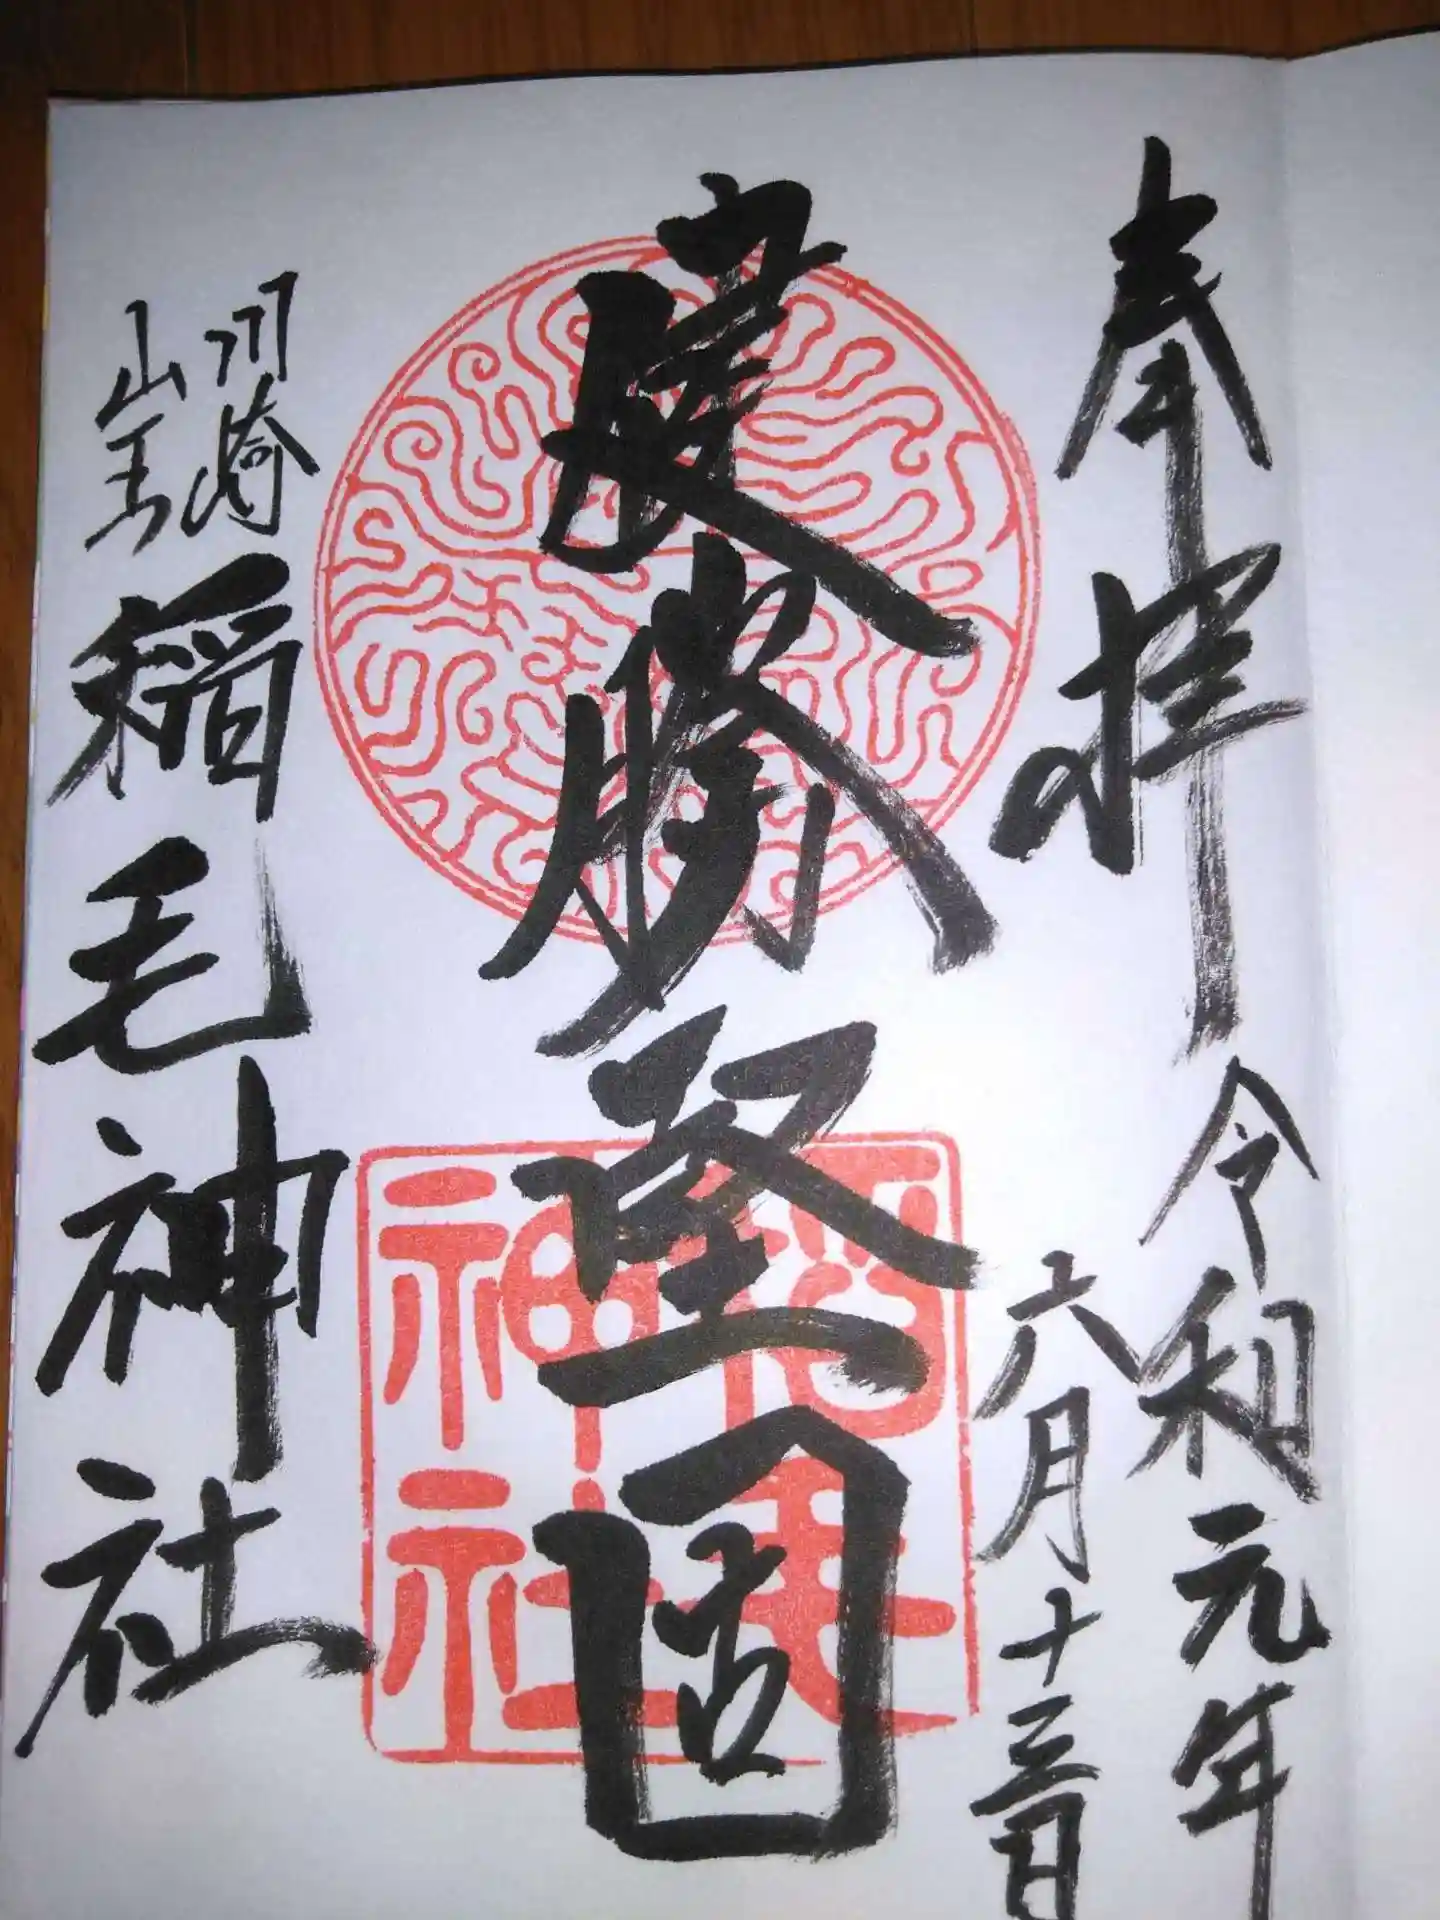 奉拝 令和元年
六月十三日
健勝堅固
川崎
山王
稲毛神社
稲毛
神社